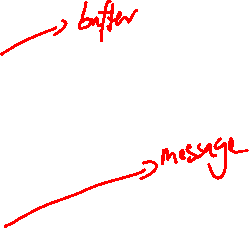 buffer
message